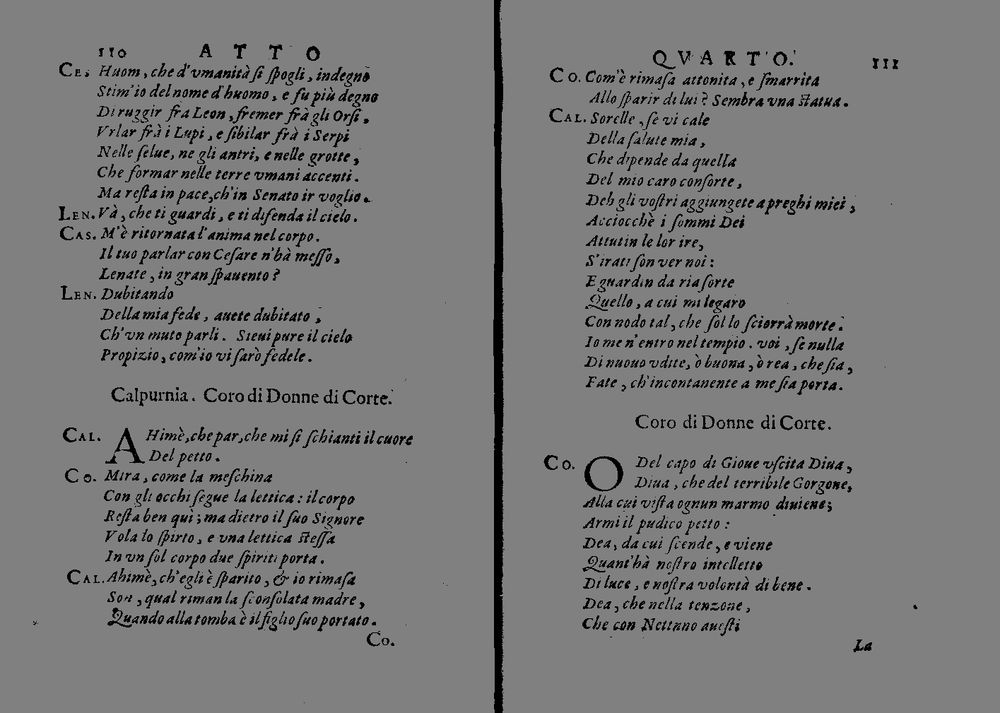 110 ATTO
CES Huom, che d'vmanità si spogli, indegno
Stim'io del nome d'huomo, e fu più degno
Di ruggir fra Leon, fremer frà gli Orsi,
Vrlar frà i Lupi, e sibilar frà i Serpi
Nelle selue, ne gli antri, e nelle grotte,
Che formar nelle terre vmani accenti.
Ma resta in pace, ch'in Senato ir voglio.
LEN. Và, che ti guardi, e ti difenda il cielo.
CAS. M'è ritornata l'anima nel corpo.
Il tuo parlar con Cesare n'hà messo,
Lenate, in gran spauento?
LEN. Dubitando
Della mia fede, auete dubitato,
Ch'vn muto parli. Sieui pure il cielo
Propizio, com'io vi sarò fedele.
Calpurnia. Coro di Donne di Corte.
CAL. AHimè, che par, che mi si schianti il cuore
Del petto.
Co. Mira, come la meschina
Con gli occhi segue la lettica: il corpo
Resta ben qui; ma dietro il suo Signore
Vola lo spirto, e vna lettica stessa
In vn sol corpo due spiriti porta.
CAL. Ahimè, ch'egli è sparito, & io rimasa
Son, qual riman la sconsolata madre,
Quando alla tomba è il figlio suo portato.
Co.
QVARTO. 111
CO. Com'è rimasa attonita, e smarrita
Allo sparir di lui? Sembra vna statua.
CAL. Sorelle, se vi cale
Della salute mia,
Che dipende da quella
Del mio caro consorte,
Deh gli vostri aggiungete a preghi miei,
Acciocchè i sommi Dei
Attutin le lor ire,
S'irati son ver noi:
E guardin da ria sorte
Quello, a cui mi legaro
Con nodo tal, che sol lo sciorrà morte.
Io me n'entro nel tempio. voi, se nulla
Di nuouo vdite, ò buona, ò rea, che sia,
Fate, ch'incontanente a me sia porta.
Coro di Donne di Corte.
Co. O Del capo di Gioue vscita Diua,
Diua, che del terribile Gorgone,
Alla cui vista ognun marmo diuiene;
Armi il pudico petto:
Dea, da cui scende, e viene
Quant'hà nostro intelletto
Di luce, e nostra volontà di bene.
Dea, che nella tenzone,
Che con Nettuno auesti
La